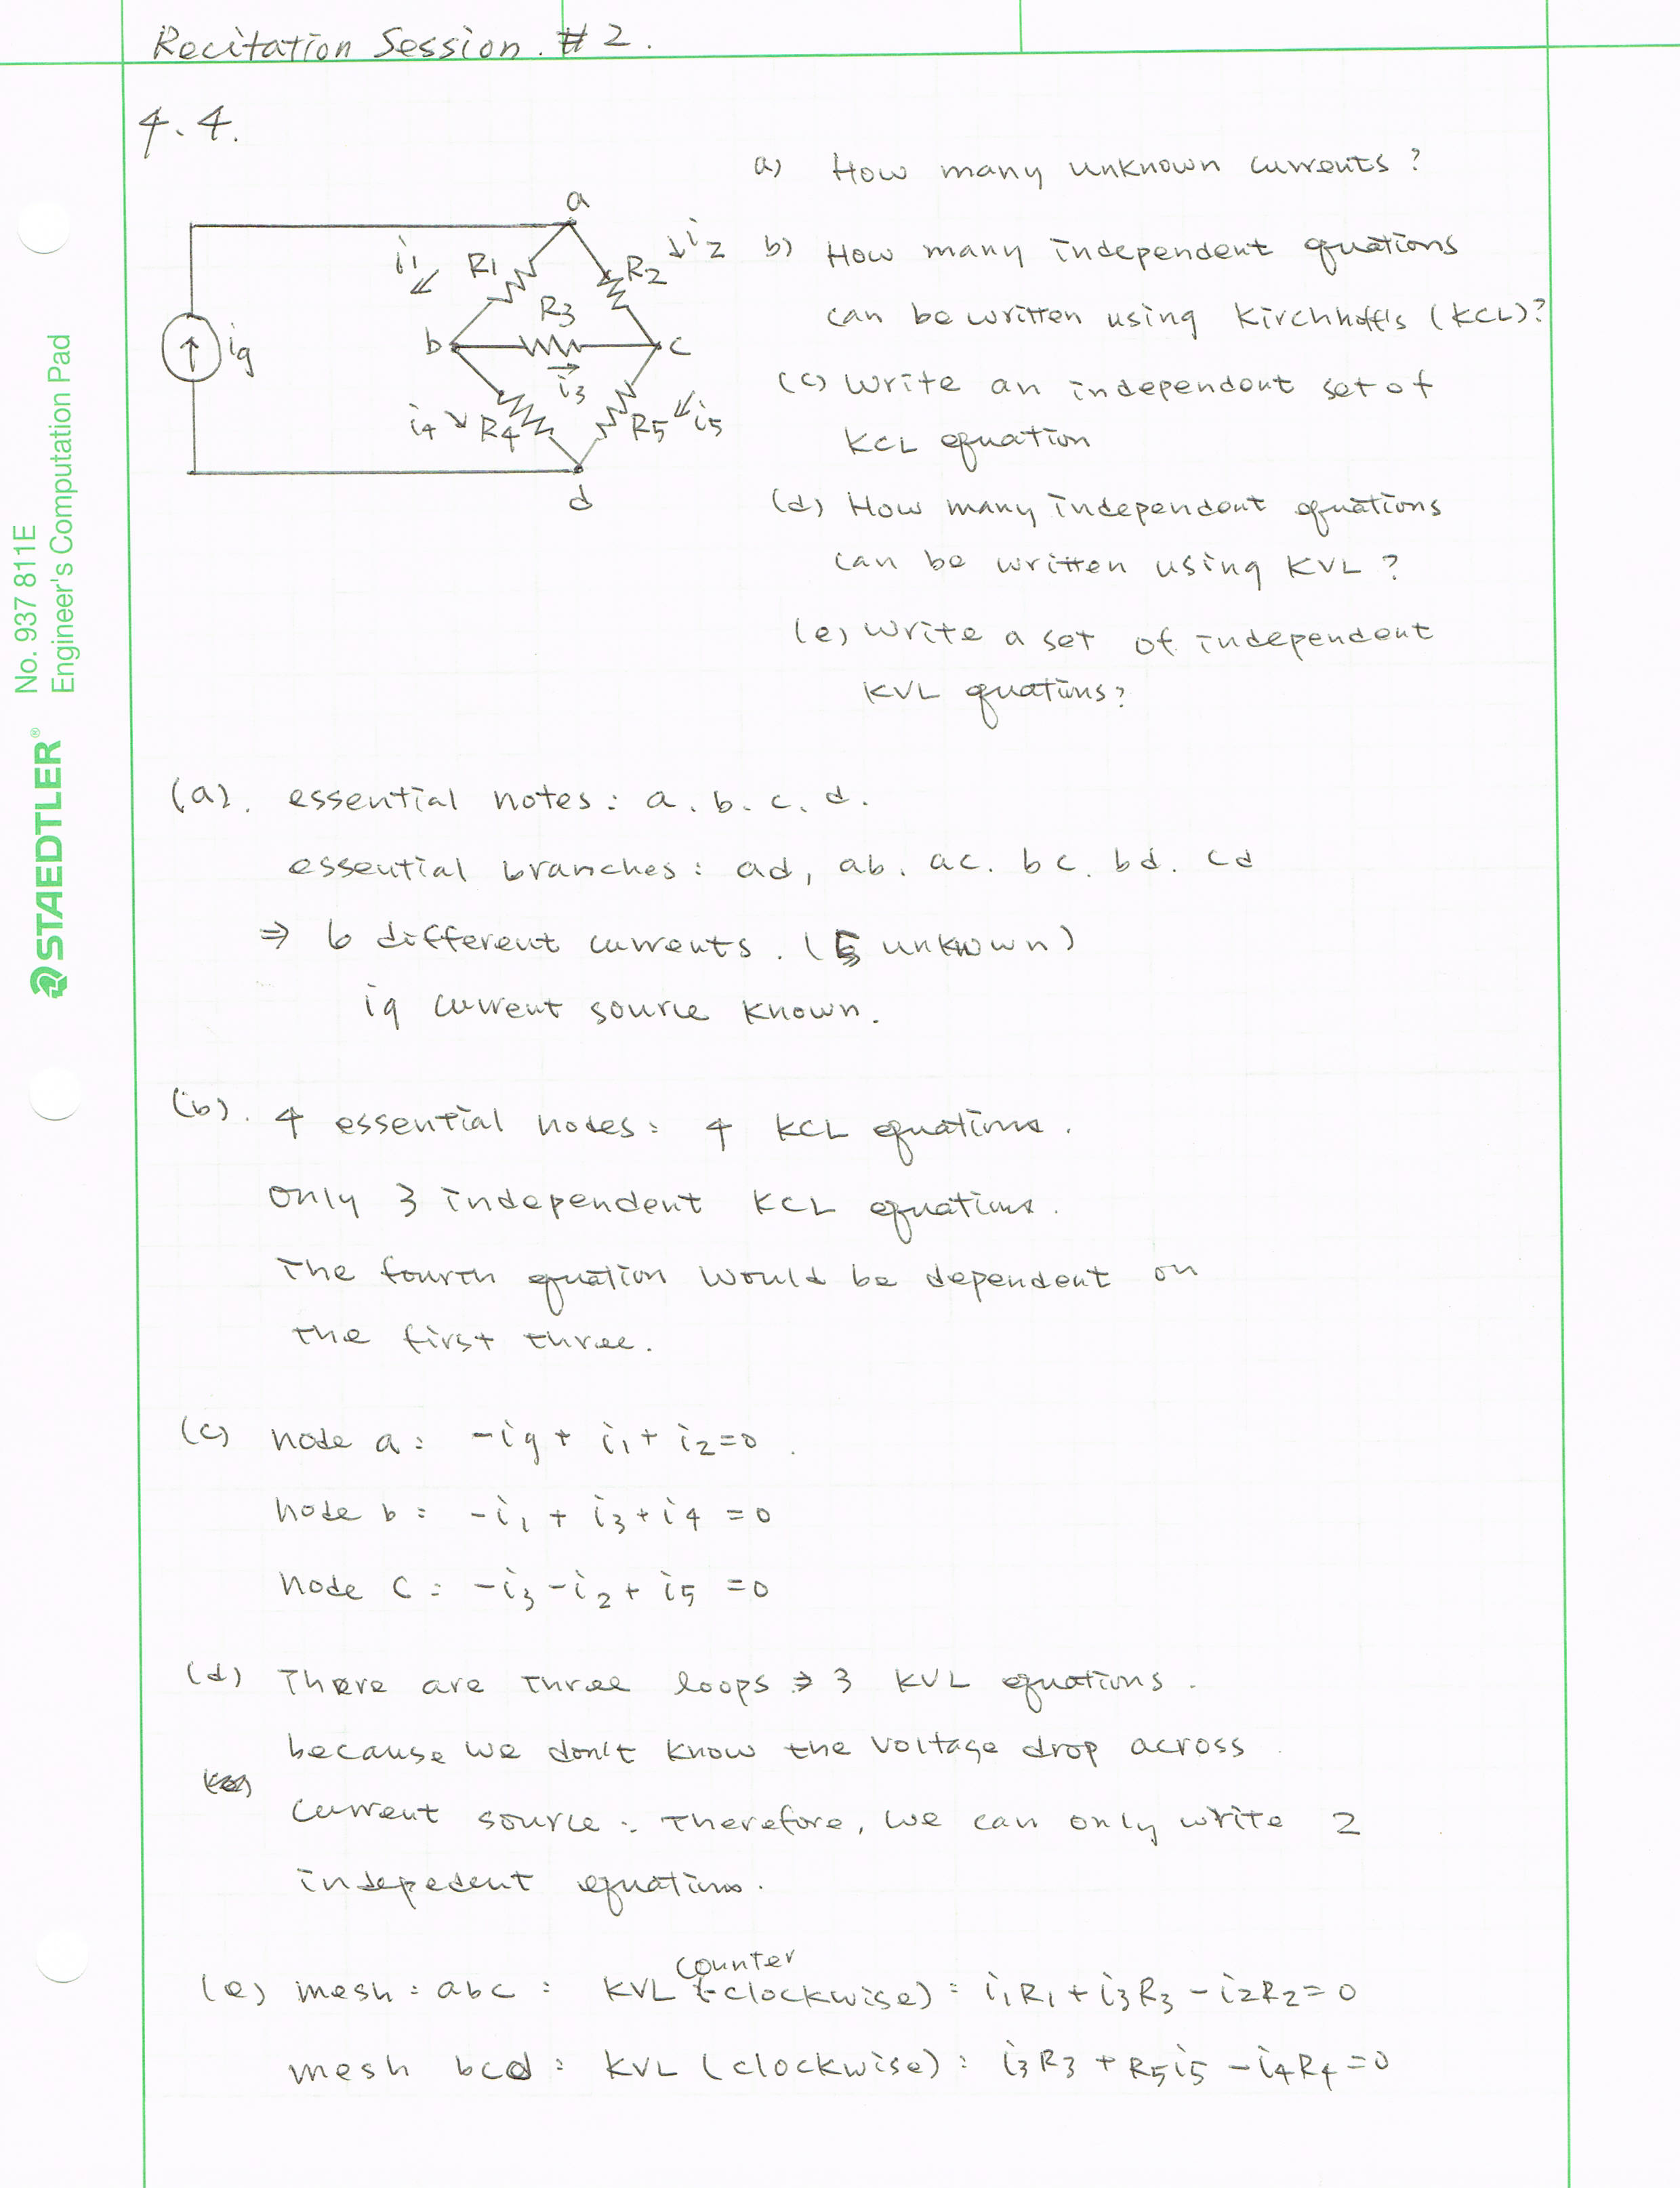 Recitation Session. #2.
4.4.
a) How many unknown currents?
b) How many independent equations
can be written using Kirchhoff's (KCL)?
(c) Write an independent set of
KCL equation
(d) How many independent equations
can be written using KVL?
(e) Write a set of independent
KVL equations?
a
i1
R1
R2
i2
R3
b
c
ig
i3
i4
R4
R5
i5
d
No. 937 811E
Engineer's Computation Pad
STAEDTLER®
(a). essential notes: a. b. c. d.
essential branches: ad, ab. ac. bc. bd. cd
⇒ 6 different currents. (5 unknown)
ig current source known.
(b). 4 essential nodes: 4 KCL equations.
only 3 independent KCL equations.
The fourth equation would be dependent on
the first three.
(c) node a: -ig + i1 + i2 = 0.
node b: -i1 + i3 + i4 = 0
node c: -i3 - i2 + i5 = 0
(d) There are three loops ⇒ 3 KVL equations.
because we don't know the voltage drop across
current source. Therefore, we can only write 2
indepedent equations.
(e) mesh: abc: KVL (counter-clockwise): i1R1 + i3R3 - i2R2 = 0
mesh bcd: KVL (clockwise): i3R3 + R5i5 - i4R4 = 0